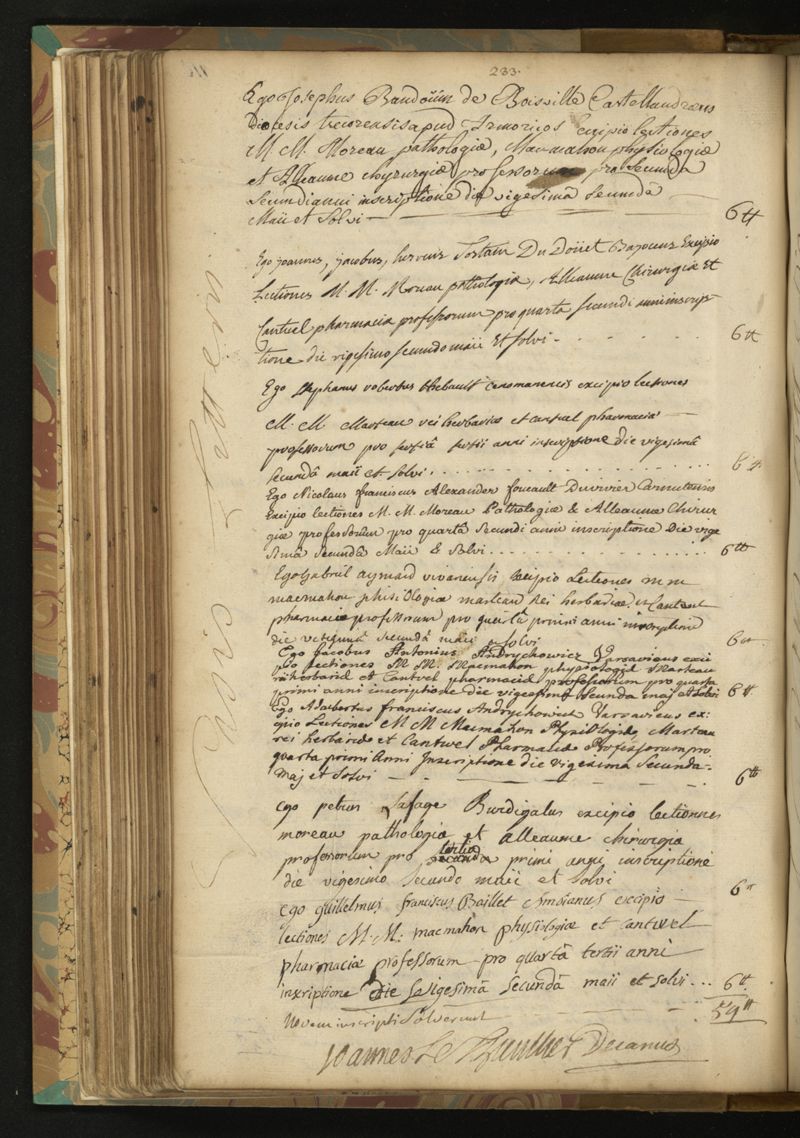 233.
Ego Josephus Baudoüin de Boisville Castellaudrens
Diocesis trecorensis apud Armoricos Excipio lectiones
M. M. Moreau pathologiæ, Macmahon physiologiæ
et Alleaume chyrurgiæ professorum pro secundâ
secundi anni inscriptione die vigesimâ secundâ
Maii et solvi — 6 tt
Ego joannes, jacobus, Du Doüet Excipio
Lectiones M. M. Moreau pathologiæ, Alleaume Chirurgiæ Et
Cantuel pharmaciæ professorum pro quarta secundi anni inscrip-
tione die vigesimo secundo maii Et solvi - 6 tt
Ego Stephanus robertus thebault cenomanensis excipio lectiones
M. M Marteau rei herbariæ et cantuel pharmaciæ
professorum pro tertiâ tertii anni inscriptione die vigesimâ
secundâ maii et solvi . . . . 6 tt
Ego Nicolaus franciscus Alexander foucault Duvivier Carnutensis
Excipio lectiones M. M. Moreau Pathologiæ & Alleaume Chirur
giæ professorum pro quartâ secundi anni inscriptione Die vige
sima secundâ Maii & solvi . . . . 6 tt
Ego gabriel aymard vivariensis, excipio Lectiones m m
macmahon phisiologiæ marteau Rei herbariæ, et Cantuel
pharmaciæ professorum pro quartâ primi anni inscriptione
die vigesimâ secundâ maii et solvi 6 tt
Ego Jacobus Antonius Andrychowicz exci
pio lectiones M M. Macmahon physiologiæ Marteau
rei herbariæ et Cantvel pharmaciæ professorum pro quarta
primi anni inscriptione die vigesima secunda maj et solvi 6 tt
Ego Adalbertus franciscus Andrychowicz Varsavicus ex:
cipio Lectiones M M Macmahon Physiologiæ, Marteau
rei herbariæ et Cantwel Pharmaciæ Professorum pro
quarta primi Anni Inscriptione die vigesima Secunda
Maj et Solvi — 6 tt
Ego petrus Lafage Burdigalus excipio lectiones
moreau pathologiæ et alleaume chirurgiæ
professorum pro tertia secunda primi anni inscriptione
die vigesimo secundo maii et solvi 6 tt
Ego guillelmus franciscus Baillet excipio
lectiones M. M. macmahon physiologiæ et Cantwel
pharmaciæ professorum pro quartâ tertii anni
inscriptione die vigesimâ secundâ maii et solvi . . . 6 tt
Novem inscripti Solverunt 54 tt
Joannes Le Thieullier Decanus